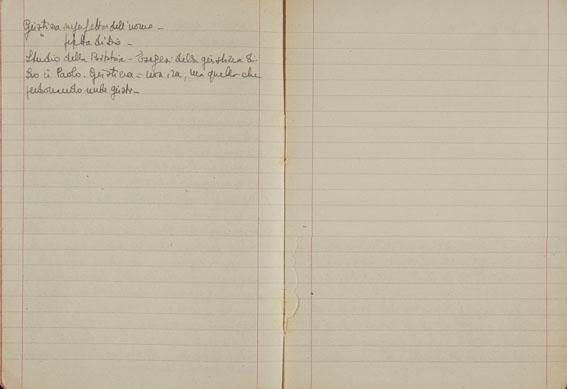 Giustizia imperfetta dell'uomo –
perfetta di Dio –
Studio della Patristica – Esegesi della giustizia di
Dio in Paolo. Giustizia = non ira, ma quella che
perdonando rende giusti –